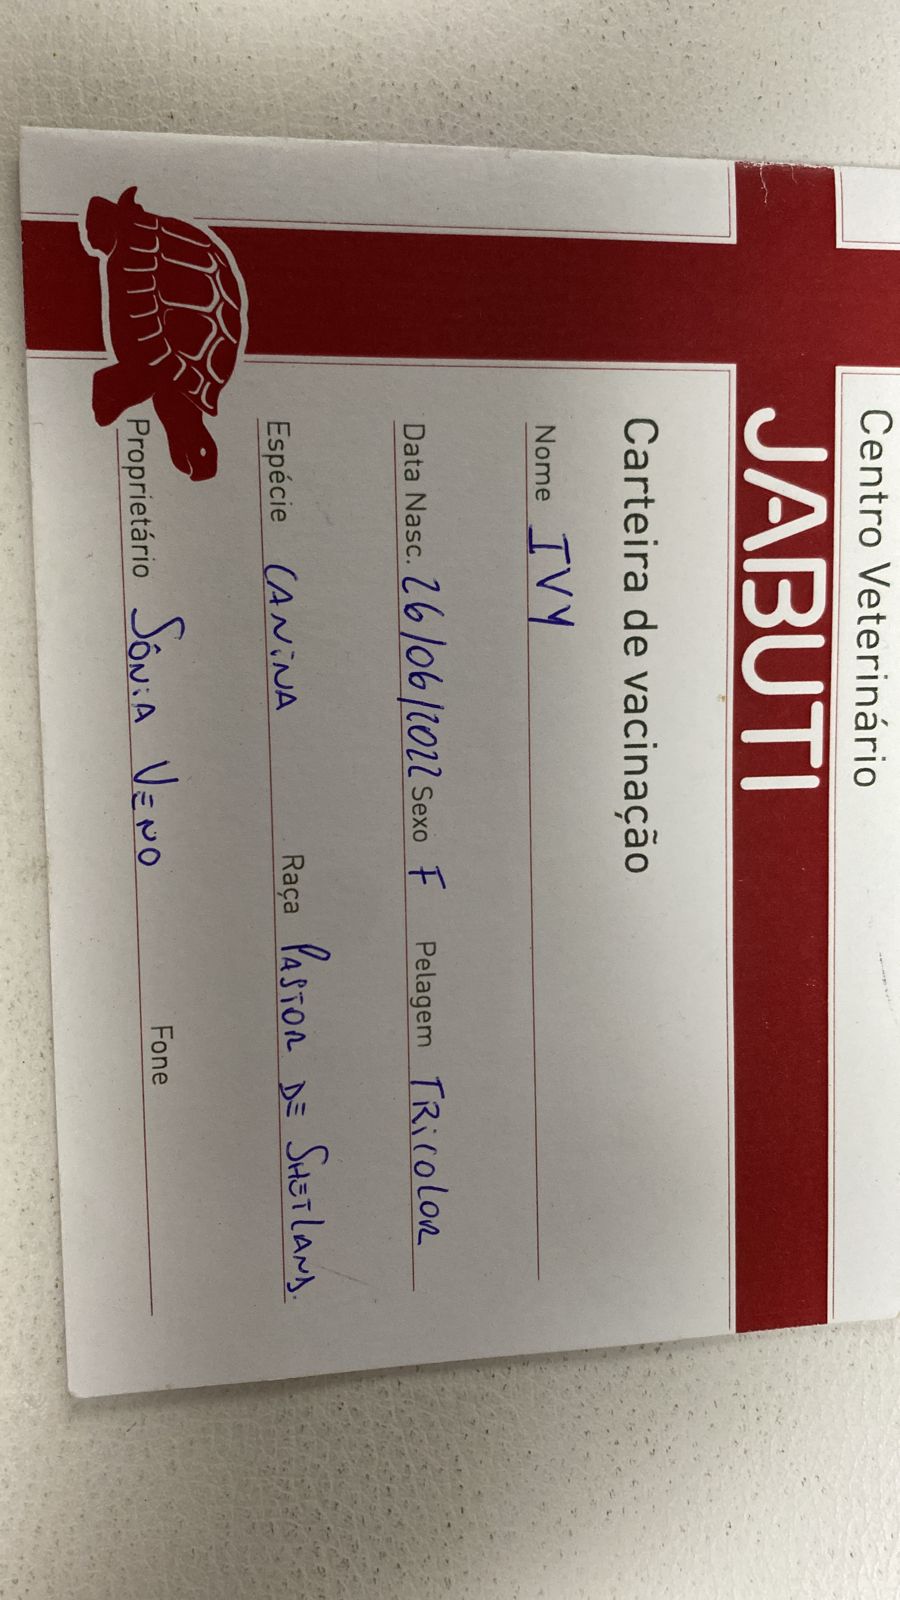 Centro Veterinário
JABUTI
Carteira de vacinação
Nome IVY
Data Nasc. 26/06/2022 Sexo F Pelagem TRICOLOR
Espécie CANINA Raça PASTOR DE SHETLAND.
Proprietário SÔNIA VENO Fone